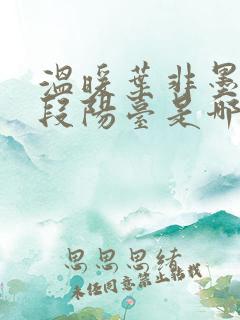 温暖葉非墨
段陽臺是哪
思思思緒
未经同意禁止转载